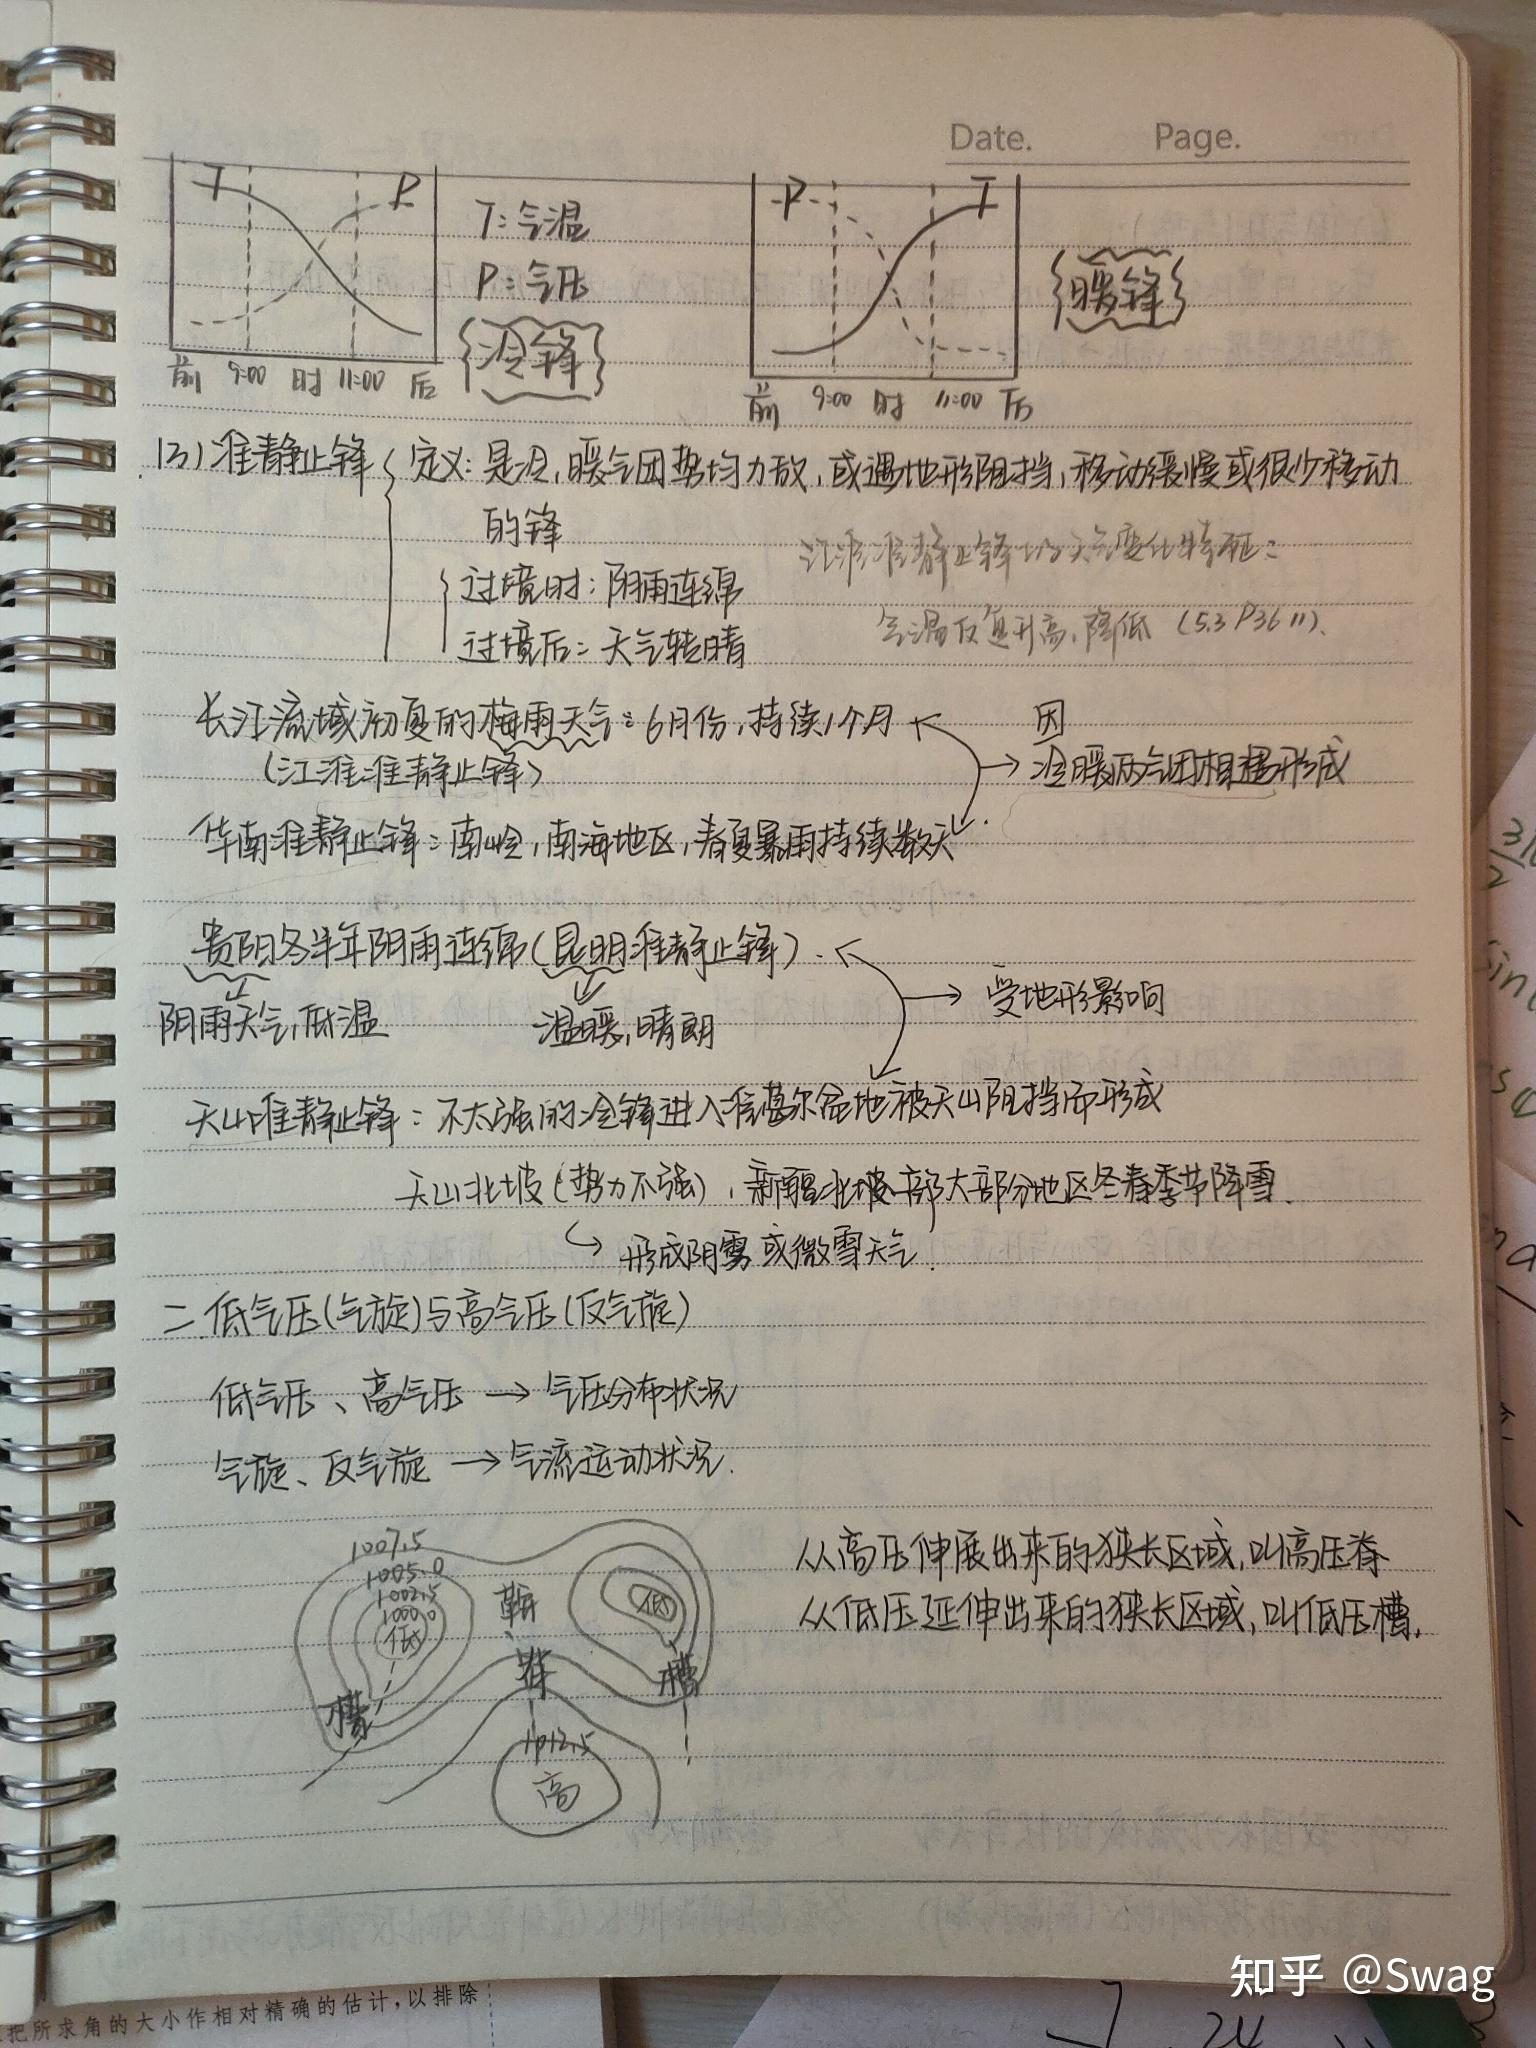 Date. Page.
T P
T:气温
P:气压
冷锋
前 9:00 时 11:00 后
P T
暖锋
前 9:00 时 11:00 后
(3)准静止锋
定义:是冷,暖气团势均力敌,或遇地形阻挡,移动缓慢或很少移动
的锋
江淮准静止锋的天气变化特征:
过境时:阴雨连绵
气温反复升高,降低 (53 P36 11).
过境后:天气转晴
长江流域初夏的梅雨天气:6月份,持续1个月
因
(江淮准静止锋)
冷暖两气团相遇形成
华南准静止锋:南岭,南海地区,春夏暴雨持续数天
贵阳冬半年阴雨连绵(昆明准静止锋).
受地形影响
阴雨天气,低温
温暖,晴朗
天山准静止锋:不太强的冷锋进入准噶尔盆地被天山阻挡而形成
天山北坡(势力不强),新疆北坡部大部分地区冬春季节降雪.
形成阴雾或微雪天气.
二.低气压(气旋)与高气压(反气旋)
低气压、高气压→气压分布状况
气旋、反气旋→气流运动状况.
从高压伸展出来的狭长区域,叫高压脊
从低压延伸出来的狭长区域,叫低压槽.
1007.5
1005.0
1002.5
1000.0
低
鞍
低
脊
槽
槽
1012.5
高
把所求角的大小作相对精确的估计,以排除
24
知乎 @Swag